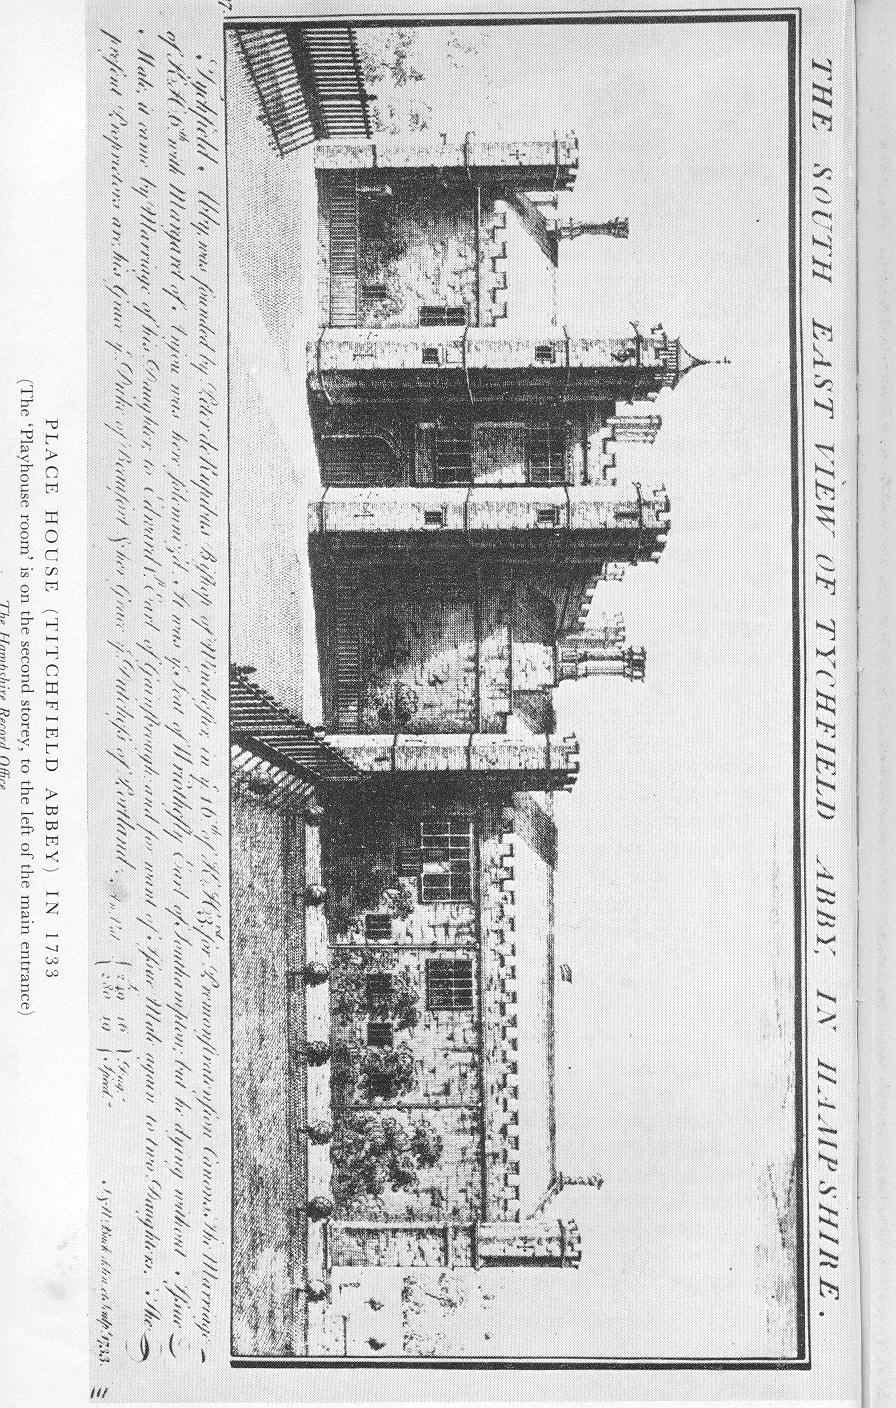 THE SOUTH EAST VIEW OF TYCHFIELD ABBY, IN HAMPSHIRE.
Tychfield Abby, was founded by Peter de Rupibus Bishop of Winchester, in yᵉ 16ᵗʰ of K. H. 3ʳᵈ for Premonstratensian Canons. The Marriage
of K. H. 6ᵗʰ with Margaret of Anjou was here solemniz'd. It was yᵉ Seat of Wriothesly Earl of Southampton; but he dying without Issue
Male, it came by Marriage of his Daughter, to Edward Earl of Gainsborough, and for want of Issue Male again to two Daughters. The
present Proprietors are, his Grace yᵉ Duke of Beaufort & her Grace yᵉ Dutchess of Portland.
S. & N. Buck delin. et sculp. 1733.
PLACE HOUSE (TITCHFIELD ABBEY) IN 1733
(The 'Playhouse room' is on the second storey, to the left of the main entrance)
The Hampshire Record Office